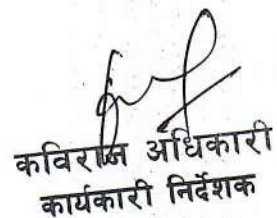 कविराज अधिकारी
कार्यकारी निर्देशक